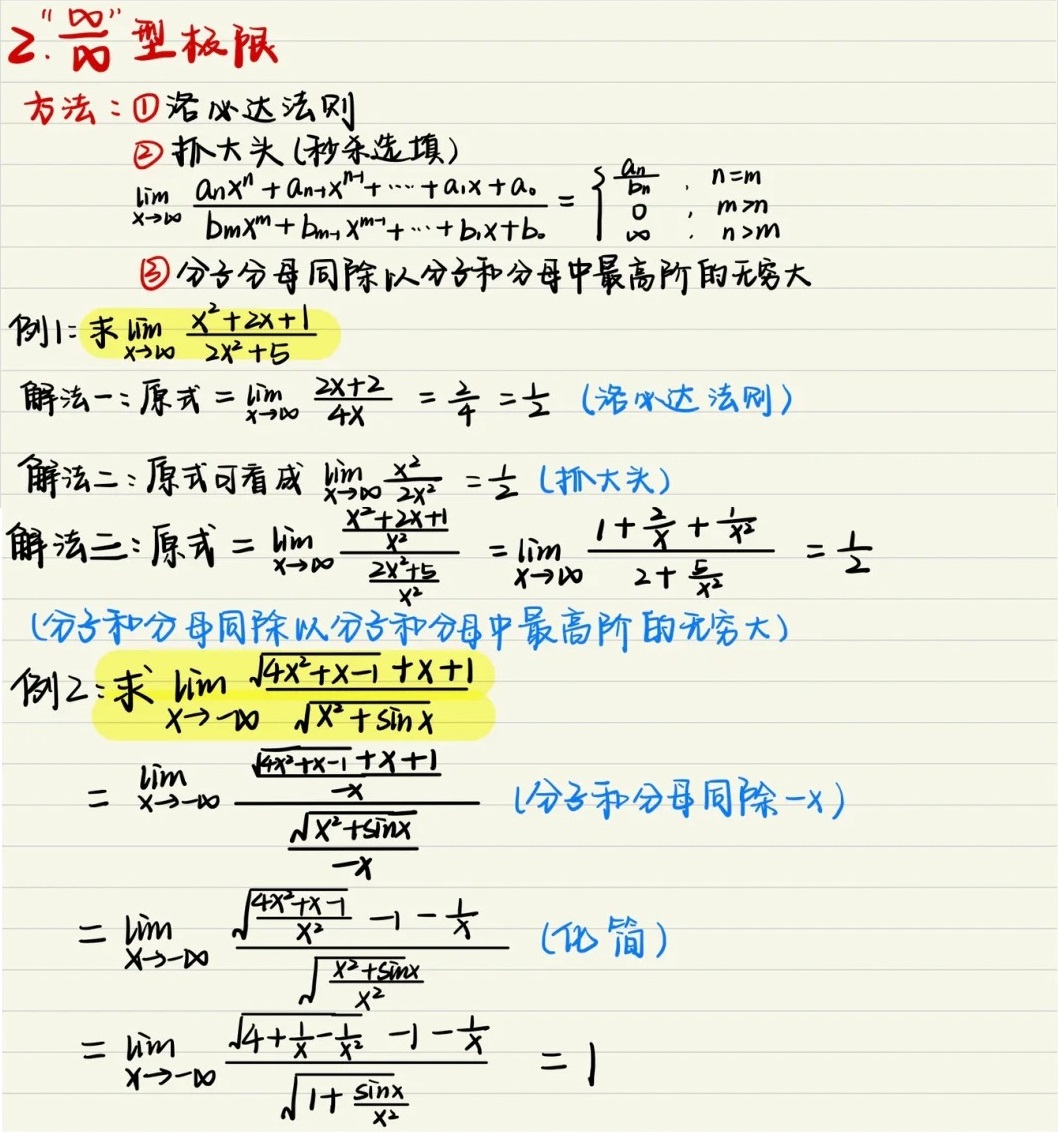 2. "∞/∞" 型极限
方法：①洛必达法则
②抓大头(秒杀选填)
lim x→∞ (aₙxⁿ + aₙ₋₁xⁿ⁻¹ + ⋯ + a₁x + a₀)/(bₘxᵐ + bₘ₋₁xᵐ⁻¹ + ⋯ + b₁x + b₀) = { aₙ/bₙ , n=m ; 0 , m>n ; ∞ , n>m
③分子分母同除以分子和分母中最高阶的无穷大
例1：求 lim x→∞ (x²+2x+1)/(2x²+5)
解法一：原式 = lim x→∞ (2x+2)/(4x) = 2/4 = 1/2 (洛必达法则)
解法二：原式可看成 lim x→∞ x²/(2x²) = 1/2 (抓大头)
解法三：原式 = lim x→∞ ((x²+2x+1)/x²)/((2x²+5)/x²) = lim x→∞ (1+2/x+1/x²)/(2+5/x²) = 1/2
(分子和分母同除以分子和分母中最高阶的无穷大)
例2：求 lim x→-∞ (√(4x²+x-1)+x+1)/√(x²+sinx)
= lim x→-∞ ((√(4x²+x-1)+x+1)/(-x))/(√(x²+sinx)/(-x)) (分子和分母同除-x)
= lim x→-∞ (√((4x²+x-1)/x²) -1 - 1/x)/√((x²+sinx)/x²) (化简)
= lim x→-∞ (√(4+1/x-1/x²) -1 - 1/x)/√(1+sinx/x²) = 1